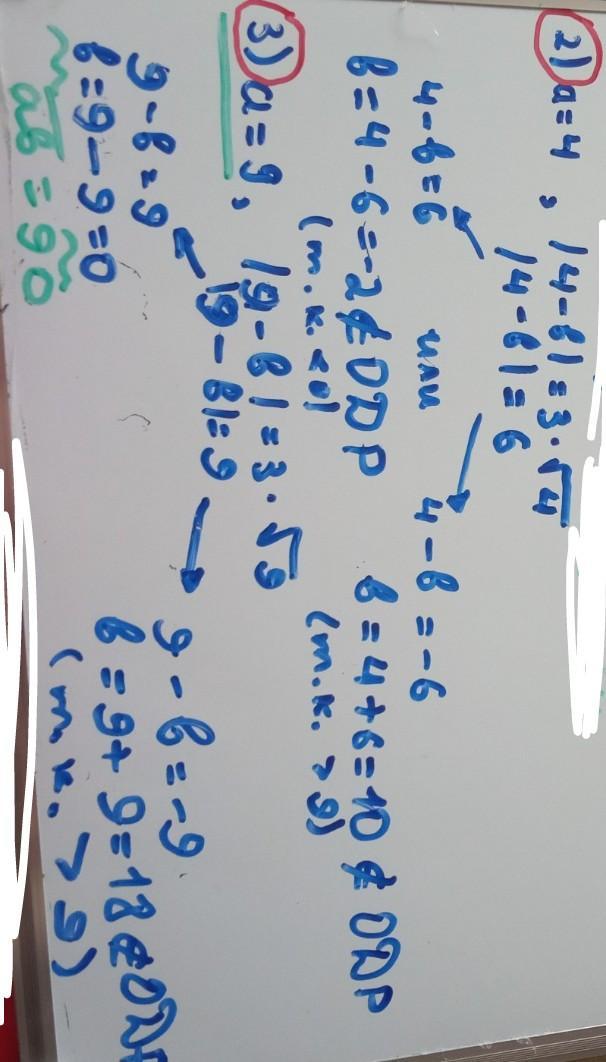 2) a = 4, |4 - в| = 3 · √4
|4 - в| = 6
4 - в = 6 или 4 - в = -6
в = 4 - 6 = -2 ∉ ОДР в = 4 + 6 = 10 ∉ ОДР
(т.к. < 0) (т.к. > 9)
3) a = 9, |9 - в| = 3 · √9
|9 - в| = 9
9 - в = 9 9 - в = -9
в = 9 - 9 = 0 в = 9 + 9 = 18 ∉ ОДР
ав = 90 (т.к. > 9)